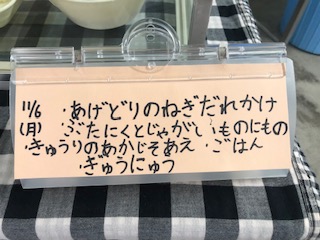 11/6 ・あげどりのねぎだれかけ
(月) ・ぶたにくとじゃがいものにもの
・きゅうりのあかじそあえ ・ごはん
・ぎゅうにゅう